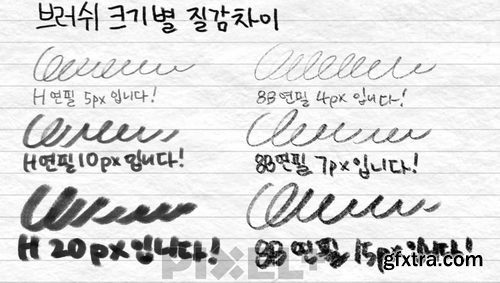 브러쉬 크기별 질감차이
H 연필 5px 입니다!
8B 연필 4px 입니다!
H 연필 10px 입니다!
8B 연필 7px 입니다!
H 20px 입니다!
8B 연필 15px 입니다!
PIXEL
gfxtra.com